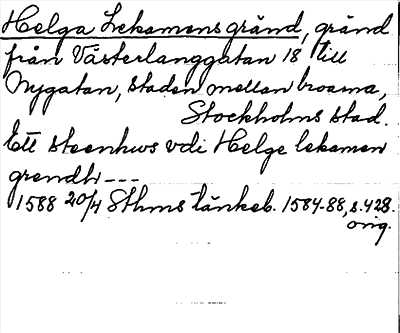 Helga Lekamens gränd, gränd
från Västerlanggatan 18 till
Nygatan, staden mellan broarna,
Stockholms stad.
Ett steenhws vdi Helge lekamen
grendh ---
1588 20/4 Sthms tänkeb. 1584-88, s. 428.
orig.